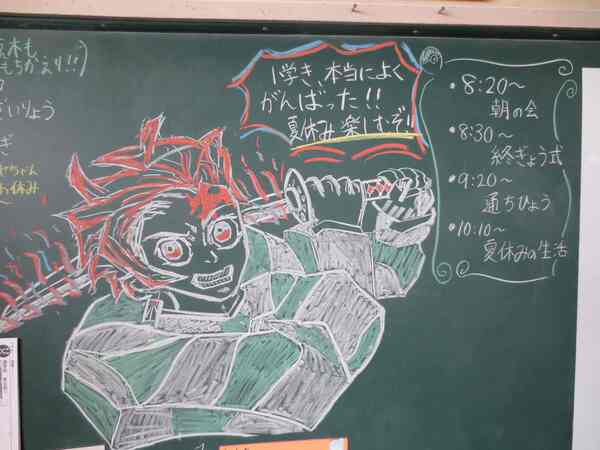 もちかえり!!)
いりょう
ちゃん
お休み
1学き、本当によく
がんばった!!
夏休み楽しむぞ!!
・8:20〜
朝の会
・8:30〜
終ぎょう式
・9:20〜
通ちひょう
・10:10〜
夏休みの生活